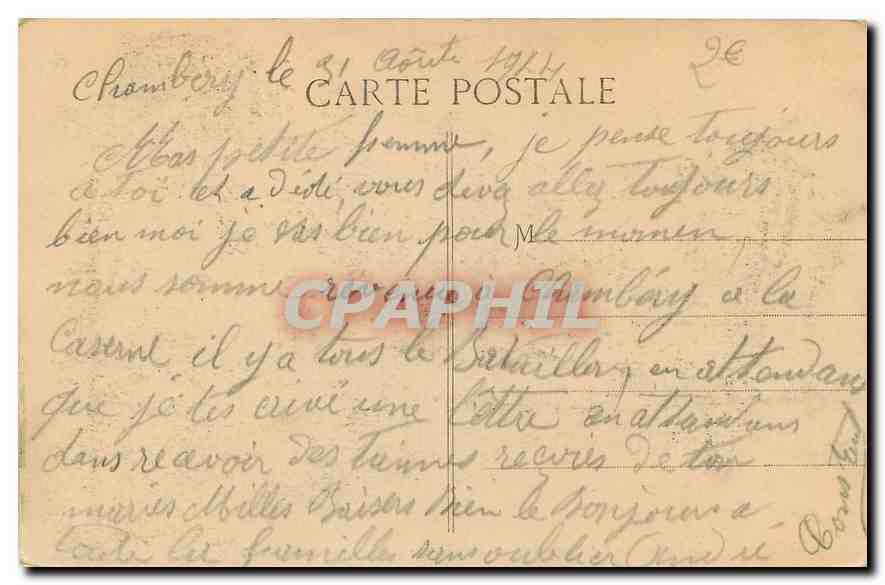 Chambéry le 31 Aôute 1914
2€
CARTE POSTALE
Mas petite femme, je pense toujours
a toi et a dédé, vous deva allez toujours
bien moi je sus bien pour le momen
M
nous somme revenus a Chambéry a la
Caserne il y a tous le Bataillon, en attendans
que je tes crive une lettre en attandans
dans recevoir des tiennes reçoies de ton
maries Milles Baisers Bien le Bonjours a
toute la familles sans oublier André
CPAPHIL